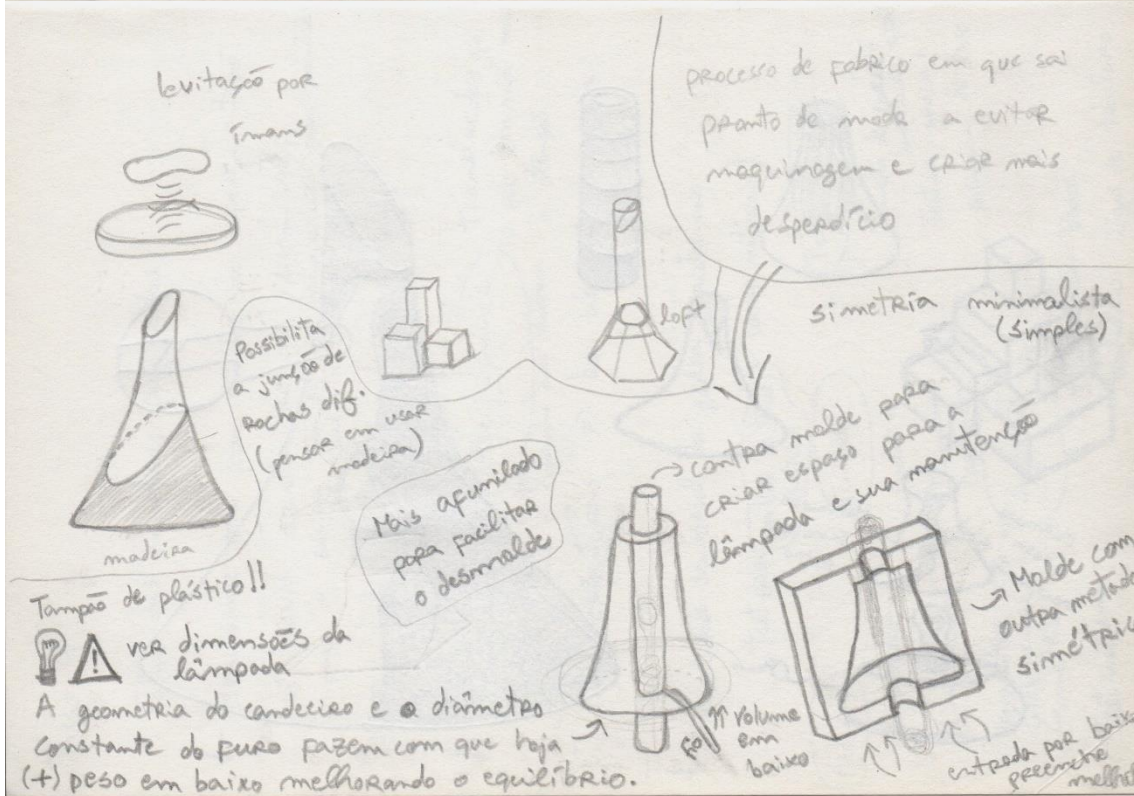 levitação por
ímans
processo de fabrico em que sai
pronto de modo a evitar
maquinagem e criar mais
desperdício
simetria minimalista
(simples)
loft
Possibilita
a junção de
rochas dif.
(pensar em usar
madeira)
madeira
Mais afunilado
para facilitar
o desmolde
contra molde para
criar espaço para a
lâmpada e sua manutenção
Molde com
outra metade
simétrica
Tampão de plástico!!
ver dimensões da
lâmpada
A geometria do candeeiro e o diâmetro
constante do furo fazem com que haja
(+) peso em baixo melhorando o equilíbrio.
volume
em
baixo
entrada por baixo
preenche
melhor